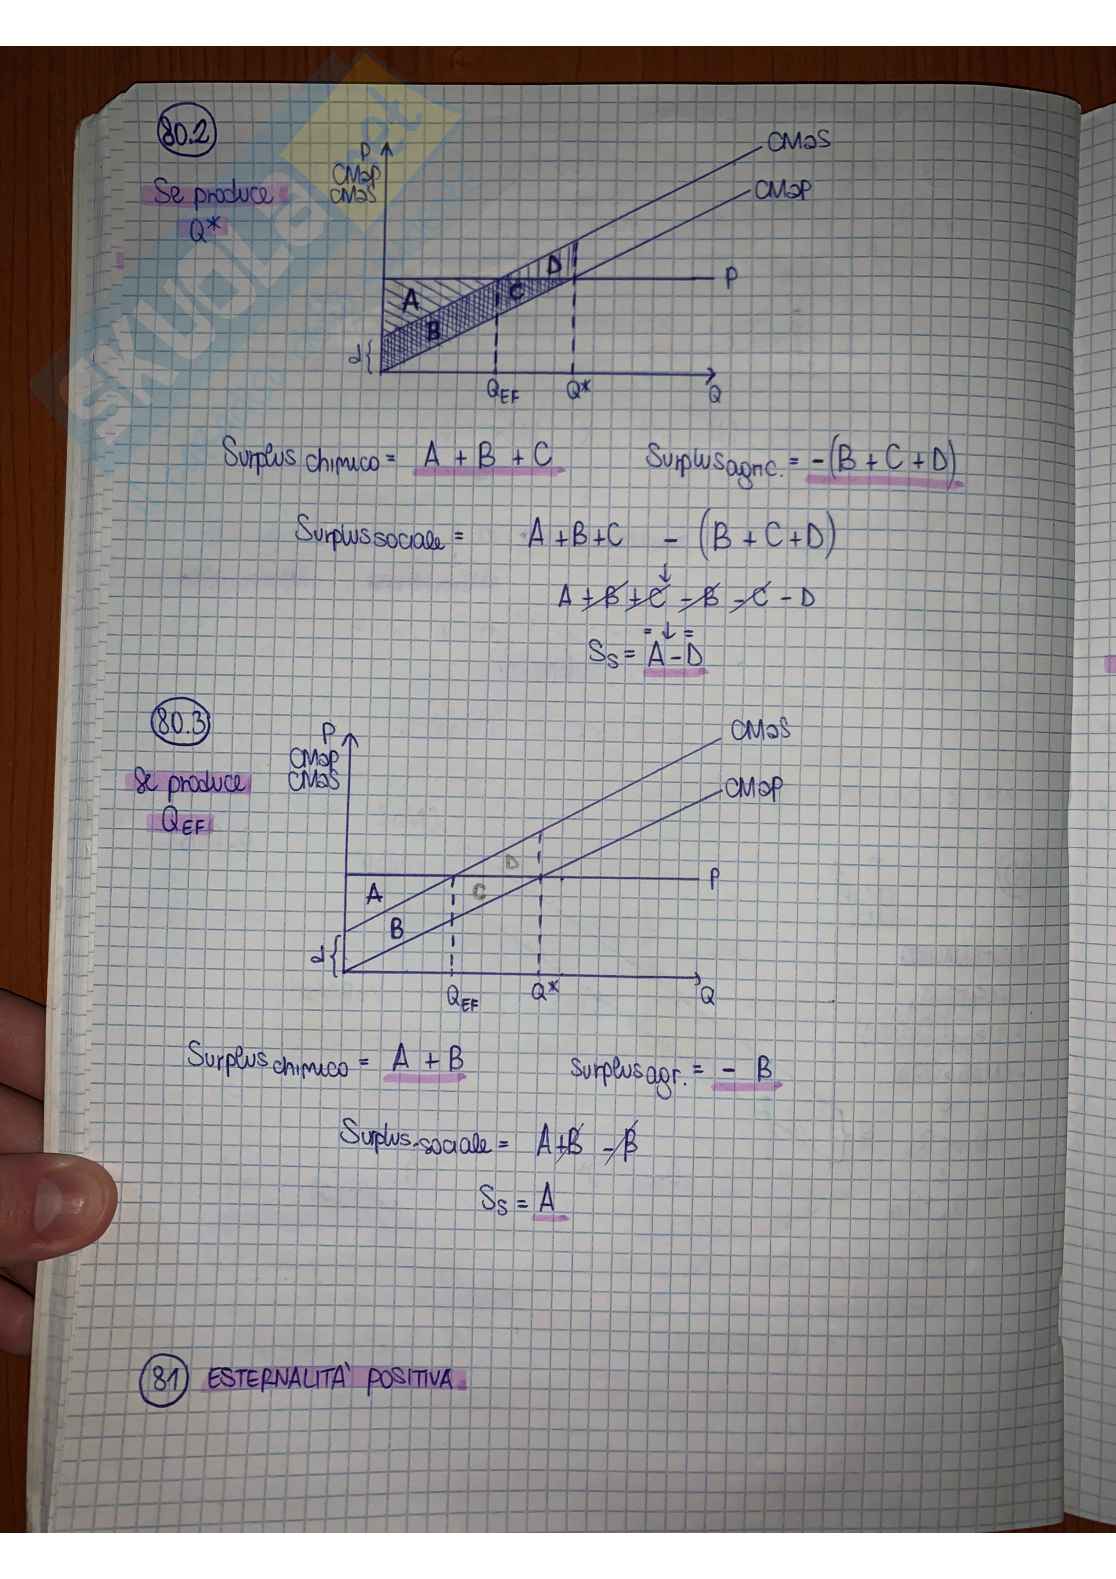 80.2
Se produce
Q*
P
CMaP
CMaS
CMaS
CMaP
P
A
B
C
D
d{
QEF
Q*
Q
Surplus chimico = A + B + C
Surplus agric. = -(B + C + D)
Surplus sociale = A + B + C - (B + C + D)
↓
A + B + C - B - C - D
= ↓ =
Ss = A - D
80.3
Se produce
QEF
P
CMaP
CMaS
CMaS
CMaP
P
A
B
C
D
d{
QEF
Q*
Q
Surplus chimico = A + B
Surplus agr. = - B
Surplus sociale = A + B - B
Ss = A
81 ESTERNALITA' POSITIVA
SKUOLA.net